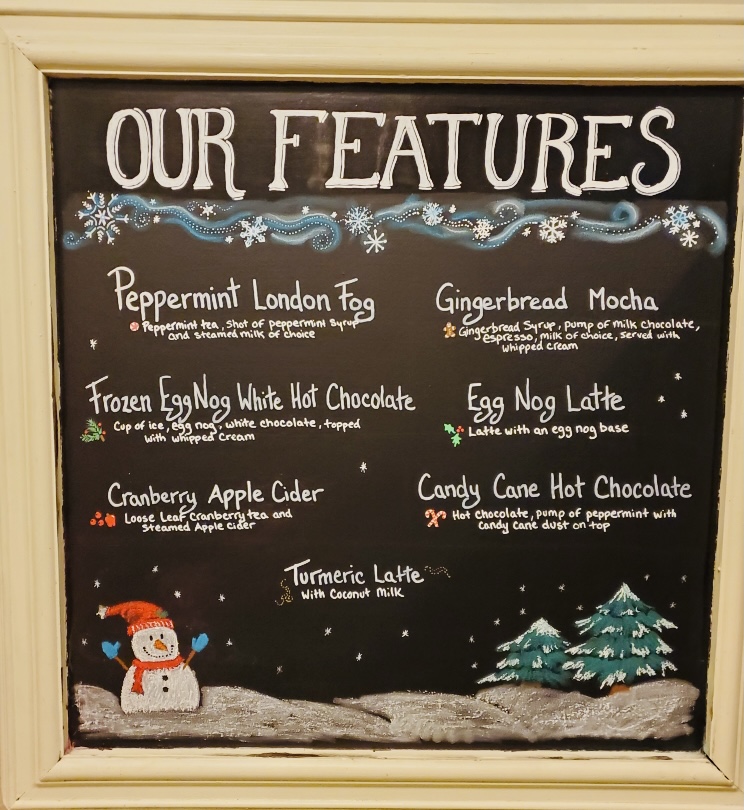 OUR FEATURES
Peppermint London Fog
Peppermint tea, shot of peppermint syrup
and steamed milk of choice
Gingerbread Mocha
Gingerbread Syrup, pump of milk chocolate,
espresso, milk of choice, served with
whipped cream
Frozen EggNog White Hot Chocolate
Cup of ice, egg nog, white chocolate, topped
with whipped cream
Egg Nog Latte
Latte with an egg nog base
Cranberry Apple Cider
Loose Leaf cranberry tea and
Steamed Apple cider
Candy Cane Hot Chocolate
Hot chocolate, pump of peppermint with
candy cane dust on top
Turmeric Latte
With Coconut Milk